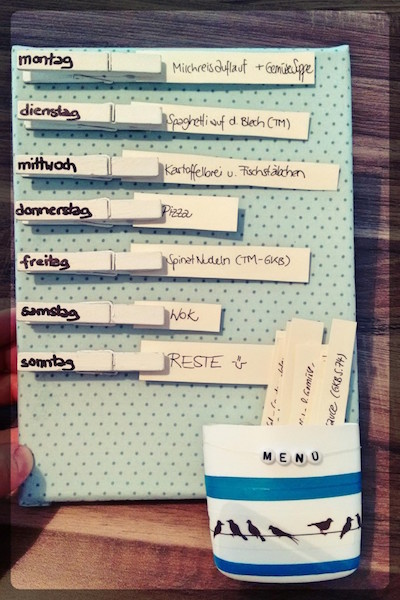 montag Milchreisauflauf + Gemüsesuppe
dienstag Spaghetti auf d. Blech (TM)
mittwoch Kartoffelbrei u. Fischstäbchen
donnerstag Pizza
freitag Spinat Nudeln (TM-GKB)
samstag Wok
sonntag RESTE
(GKB S.74)
MENÜ